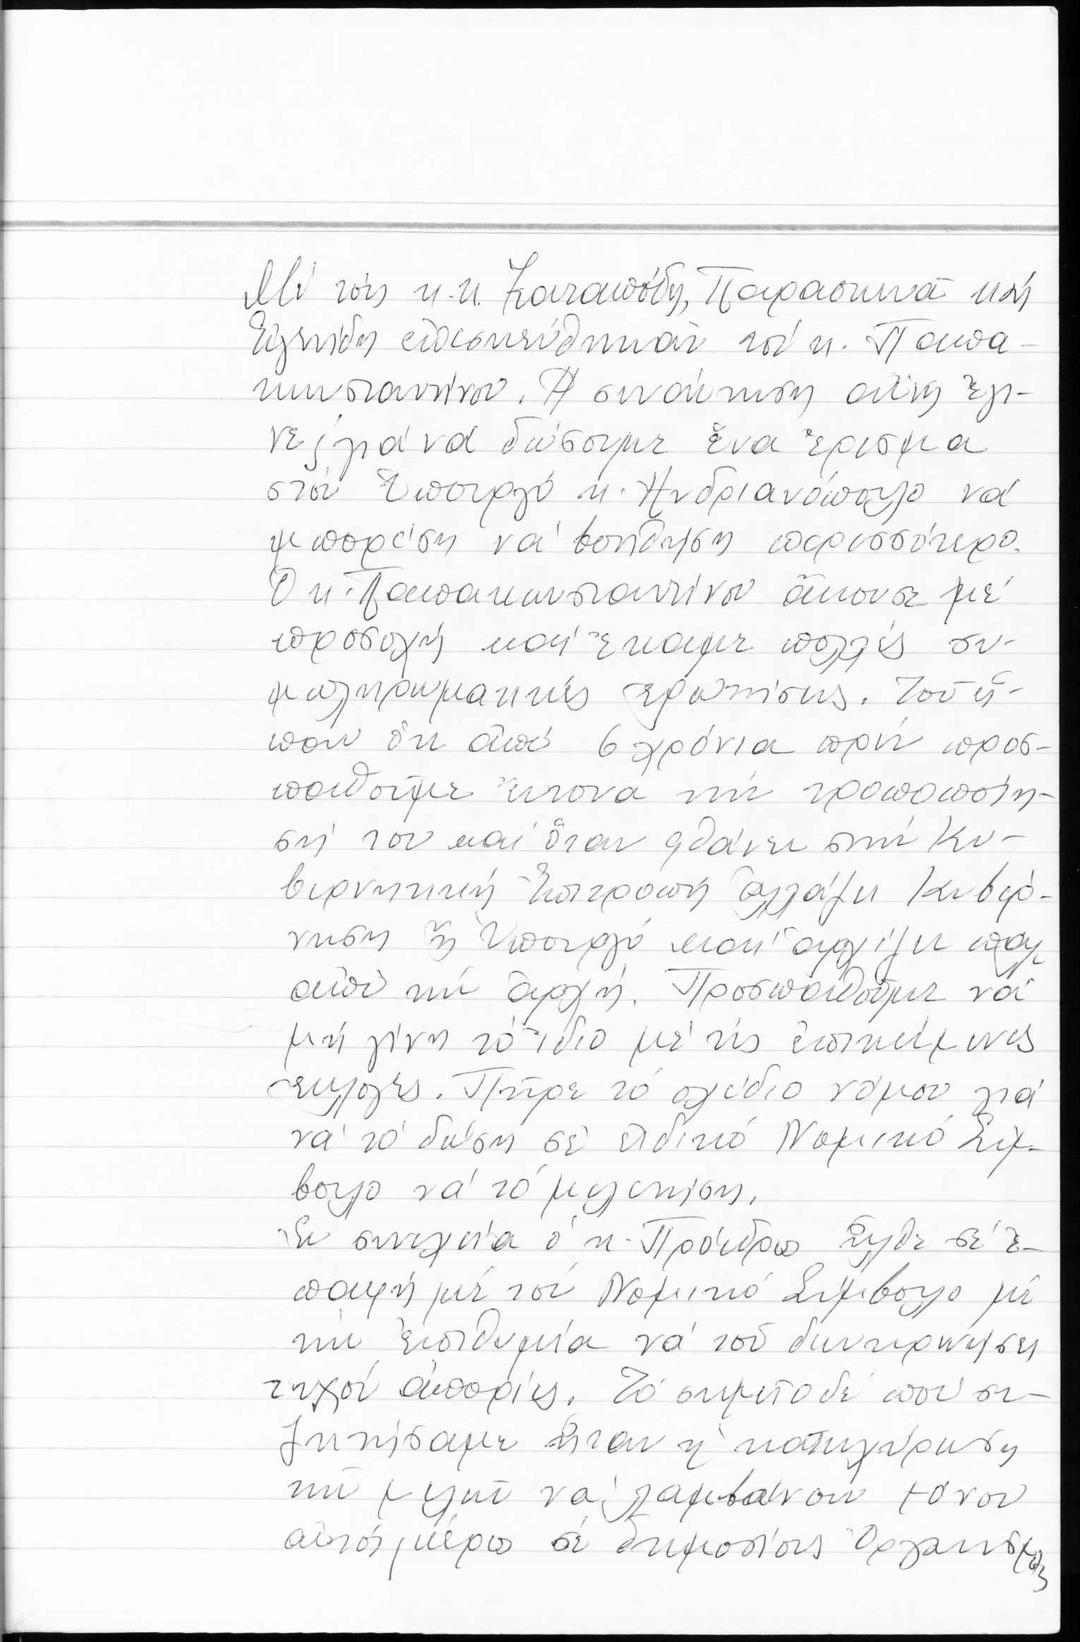 Μέ τούς κ.κ. Καταπόδη, Παρασκευά καί
ἐπισκεύθηκαν τόν κ. Παπα-
κωνσταντίνου. Ἡ συνάντηση αὐτή ἔγι-
νε γιά νά δώσουμε ἕνα ἔρεισμα
στόν Ὑπουργό κ. Ἀνδριανόπουλο νά
μπορέση νά βοηθήση περισσότερο.
Ὁ κ. Παπακωνσταντίνου ἄκουσε μέ
προσοχή καί ἔκαμε πολλές συ-
μπληρωματικές ἐρωτήσεις. Τοῦ εἴ-
παν ὅτι ἀπό 6 χρόνια πρίν προσ-
παθοῦμε ἔντονα τήν τροποποίη-
σή του καί ὅταν φθάνει στήν Κυ-
βερνητική Ἐπιτροπή ἀλλάζει Κυβέρ-
νηση ἤ Ὑπουργό καί ἀρχίζει πάλι
ἀπό τήν ἀρχή. Προσπαθοῦμε νά
μή γίνη τό ἴδιο μέ τίς ἐπικείμενες
ἐκλογές. Πῆρε τό σχέδιο νόμου γιά
νά τό δώση σέ εἰδικό Νομικό Σύμ-
βουλο νά τό μελετήση.
Ἐν συνεχεία ὁ κ. Πρόεδρος ἦλθε σέ ἐ-
παφή μέ τόν Νομικό Σύμβουλο μέ
τήν ἐπιθυμία νά τοῦ διευκρινήσει
τυχόν ἀπορίες. Τό σημεῖο δέ πού συ-
ζητήσαμε ἦταν ἡ κατηγόρηση
τῶν μελῶν νά λαμβάνουν μόνον
αὐτοί μέρος σέ δημοσίους Ὀργανισμούς